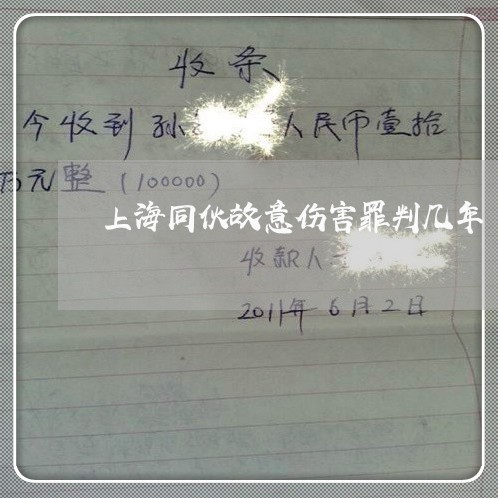 收条
今收到孙 人民币壹拾
万元整(100000)
上海同伙故意伤害罪判几年
收款人:
2011年6月2日